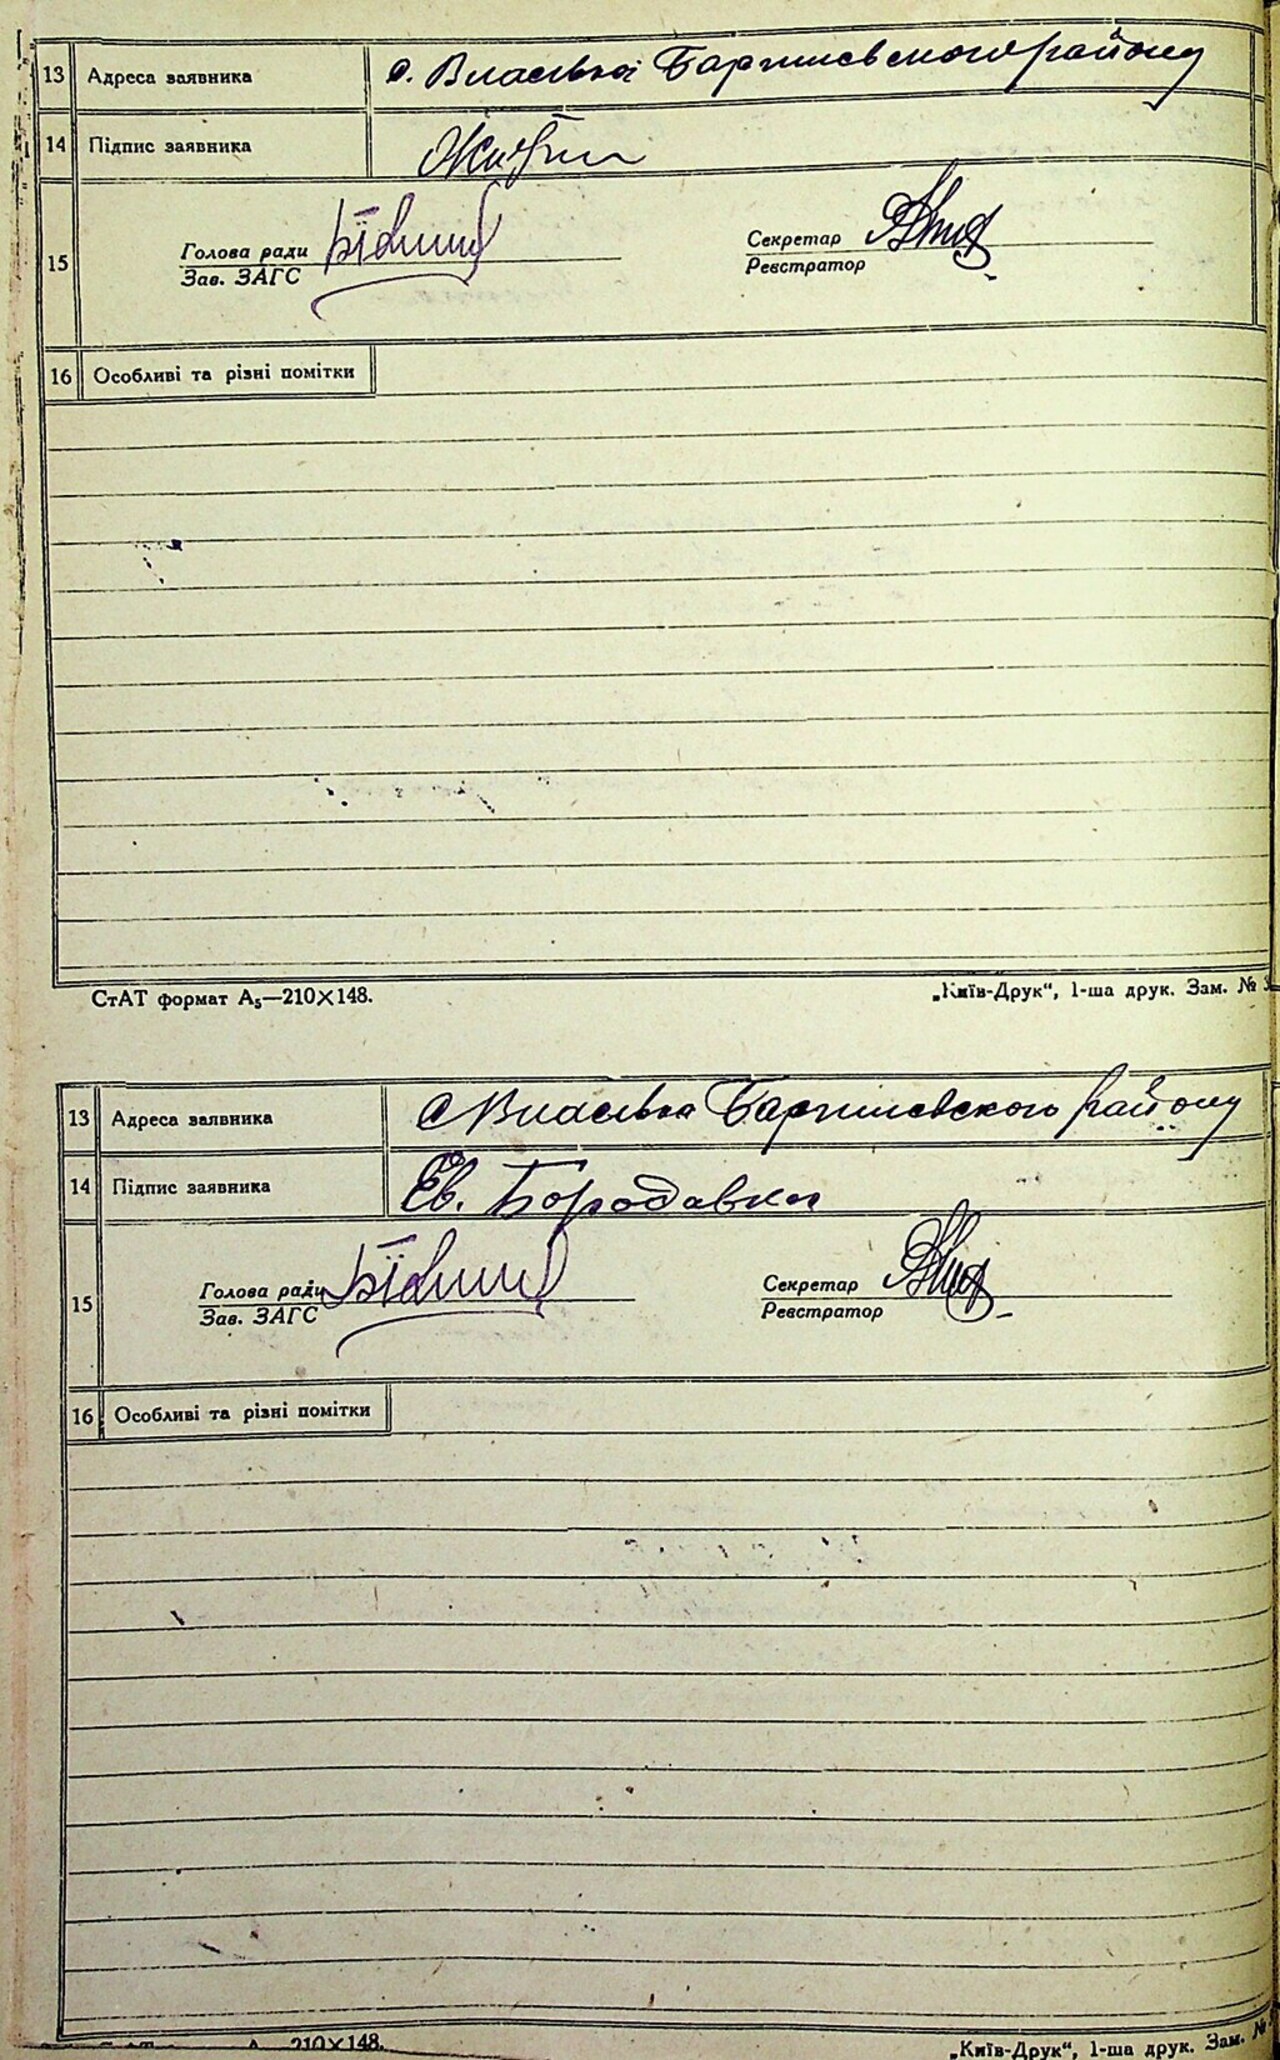 13 Адреса заявника с. Власівка Баришевського району
14 Підпис заявника
15 Голова ради Секретар
Зав. ЗАГС Реєстратор
16 Особливі та різні помітки
СтАТ формат А₅—210×148. „Київ-Друк“, 1-ша друк. Зам. №
13 Адреса заявника с Власівка Баришевського району
14 Підпис заявника Єв. Бородавка
15 Голова ради Секретар
Зав. ЗАГС Реєстратор
16 Особливі та різні помітки
210×148. „Київ-Друк“, 1-ша друк. Зам. №